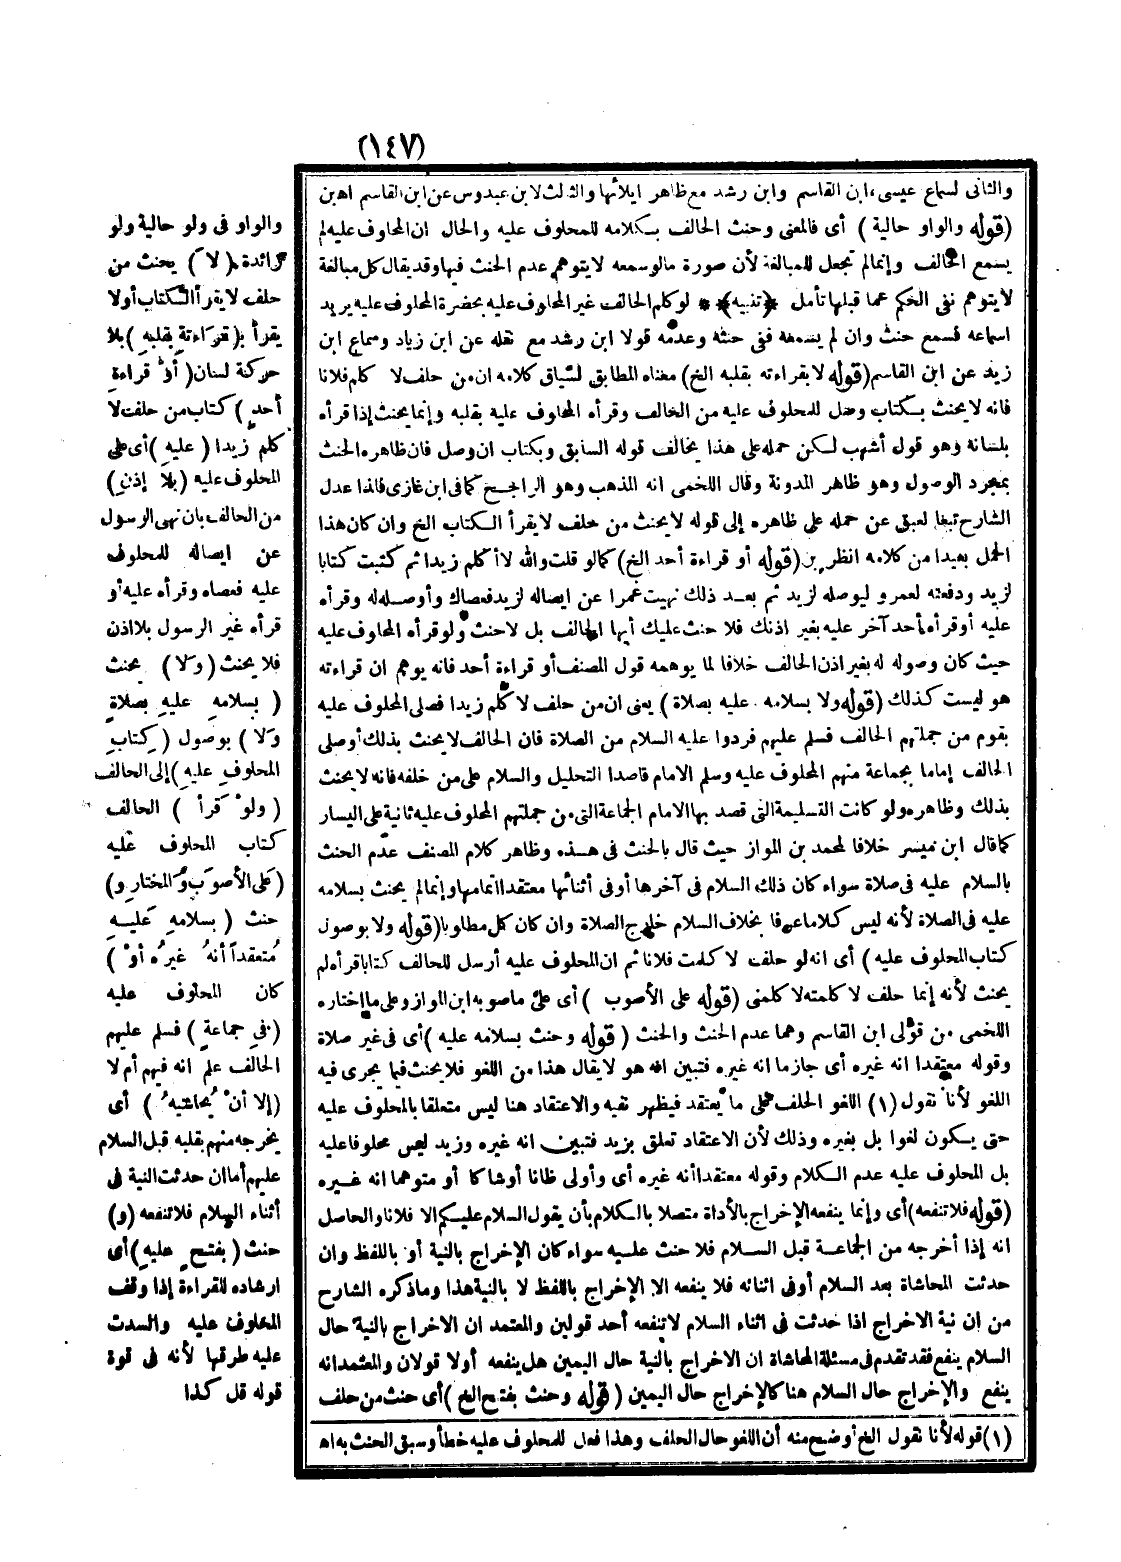 (١٤٧)
والثانى لسماع عيسى ابن القاسم وابن رشد مع ظاهر ايلائها والثالث لابن عبدوس عن ابن القاسم اه بن
(قوله والواو حالية) أى فالمعنى وحنث الحالف بكلامه للمحلوف عليه والحال ان المحلوف عليه لم
يسمع الحالف وإنما لم تجعل للمبالغة لأن صورة ما لو سمعه لا يتوهم عدم الحنث فيها وقد يقال كل مبالغة
لا يتوهم نفى الحكم عما قبلها تأمل ﴿تنبيه﴾ * لو كلم الحالف غير المحلوف عليه بحضرة المحلوف عليه يريد
اسماعه فسمع حنث وان لم يسمعه ففى حنثه وعدمه قولا ابن رشد مع نقله عن ابن زياد وسماع ابن
زيد عن ابن القاسم (قوله لا بقراءته بقلبه الخ) معناه المطابق لسياق كلامه ان من حلف لا كلم فلانا
فانه لا يحنث بكتاب وصل للمحلوف عليه من الحالف وقرأه المحلوف عليه بقلبه وإنما يحنث إذا قرأه
بلسانه وهو قول أشهب لكن حمله على هذا يخالف قوله السابق وبكتاب ان وصل فان ظاهره الحنث
بمجرد الوصول وهو ظاهر المدونة وقال اللخمى انه المذهب وهو الراجح كما فى ابن غازى فلذا عدل
الشارح تبعا لعبق عن حمله على ظاهره إلى قوله لا يحنث من حلف لا يقرأ الكتاب الخ وان كان هذا
الحمل بعيدا من كلامه انظر بن (قوله أو قراءة أحد الخ) كما لو قلت والله لا أكلم زيدا ثم كتبت كتابا
لزيد ودفعته لعمرو ليوصله لزيد ثم بعد ذلك نهيت عمرا عن ايصاله لزيد فعصاك وأوصله له وقرأه
عليه أو قرأه أحد آخر عليه بغير اذنك فلا حنث عليك أيها الحالف بل لا حنث ولو قرأه المحلوف عليه
حيث كان وصوله له بغير اذن الحالف خلافا لما يوهمه قول المصنف أو قراءة أحد فانه يوهم ان قراءته
هو ليست كذلك (قوله ولا بسلامه عليه بصلاة) يعنى ان من حلف لا كلم زيدا فصلى المحلوف عليه
بقوم من جملتهم الحالف فسلم عليهم فردوا عليه السلام من الصلاة فان الحالف لا يحنث بذلك أو صلى
الحالف إماما بجماعة منهم المحلوف عليه وسلم الامام قاصدا التحليل والسلام على من خلفه فانه لا يحنث
بذلك وظاهره ولو كانت التسليمة التى قصد بها الامام الجماعة التى من جملتهم المحلوف عليه ثانية على اليسار
كما قال ابن ميسر خلافا لمحمد بن المواز حيث قال بالحنث فى هذه وظاهر كلام المصنف عدم الحنث
بالسلام عليه فى صلاة سواء كان ذلك السلام فى آخرها أو فى أثنائها معتقدا اتمامها وإنما لم يحنث بسلامه
عليه فى الصلاة لأنه ليس كلاما عرفا بخلاف السلام خارج الصلاة وان كان كل مطلوبا (قوله ولا بوصول
كتاب المحلوف عليه) أى انه لو حلفت لا كلمت فلانا ثم ان المحلوف عليه أرسل للحالف كتابا قرأه لم
يحنث لأنه إنما حلف لا كلمته لا كلمنى (قوله على الأصوب) أى على ما صوبه ابن المواز وعلى ما اختاره
اللخمى من قولى ابن القاسم وهما عدم الحنث والحنث (قوله وحنث بسلامه عليه) أى فى غير صلاة
وقوله معتقدا انه غيره أى جازما انه غيره فتبين انه هو لا يقال هذا من اللغو فلا يحنث فيما يجرى فيه
اللغو لأنا نقول (١) اللغو الحلف على ما يعتقد فيظهر نفيه والاعتقاد هنا ليس متعلقا بالمحلوف عليه
حتى يكون لغوا بل بغيره وذلك لأن الاعتقاد تعلق بزيد فتبين انه غيره وزيد ليس محلوفا عليه
بل المحلوف عليه عدم الكلام وقوله معتقدا أنه غيره أى وأولى ظانا أو شاكا أو متوهما انه غيره
(قوله فلا تنفعه) أى وإنما ينفعه الإخراج بالأداة متصلا بالكلام بأن يقول السلام عليكم الا فلانا والحاصل
انه إذا أخرجه من الجماعة قبل السلام فلا حنث عليه سواء كان الإخراج بالنية أو باللفظ وان
حدثت المحاشاة بعد السلام أو فى اثنائه فلا ينفعه الا الإخراج باللفظ لا بالنية هذا وما ذكره الشارح
من ان نية الاخراج اذا حدثت فى اثناء السلام لا تنفعه أحد قولين والمعتمد ان الاخراج بالنية حال
السلام ينفع فقد تقدم فى مسئلة المحاشاة ان الاخراج بالنية حال اليمين هل ينفعه أولا قولان والمعتمد انه
ينفع والإخراج حال السلام هنا كالإخراج حال اليمين (قوله وحنث بفتح الخ) أى حنث من حلف
(١) قوله لأنا نقول الخ أوضح منه أن اللغو حال الحلف وهذا فعل للمحلوف عليه خطأ وسبق الحنث به اه
والواو فى ولو حالية ولو
زائدة (لا) يحنث من
حلف لا يقرأ الكتاب أو لا
يقرأ (بِقراءتهِ بقلبهِ) بلا
حركة لسان (أو قراءةِ
أحدٍ) كتاب من حلف لا
كلم زيدا (عليهِ) أى على
المحلوف عليه (بلا إذنٍ)
من الحالف بان نهى الرسول
عن ايصاله للمحلوف
عليه فعصاه وقرأه عليه أو
قرأه غير الرسول بلا اذن
فلا يحنث (ولا) يحنث
(بسلامهِ عليهِ بصلاةٍ
ولا) بوصول (كتابِ
المحلوفِ عليهِ) إلى الحالف
(ولوْ قرأَ) الحالف
كتاب المحلوف عليه
(على الأصوبِ والمختارِ و)
حنث (بسلامهِ عليهِ
مُعتقداً أنهُ غيرُهُ أوْ)
كان المحلوف عليه
(فى جماعةٍ) فسلم عليهم
الحالف علم انه فيهم أم لا
(إلا أنْ يُحاشيهُ) أى
يخرجه منهم بقلبه قبل السلام
عليهم أما ان حدثت النية فى
أثناء السلام فلا تنفعه (و)
حنث (بفتحٍ عليهِ) أى
ارشاده للقراءة إذا وقف
المحلوف عليه والسدت
عليه طرقها لأنه فى قوة
قوله قل كذا